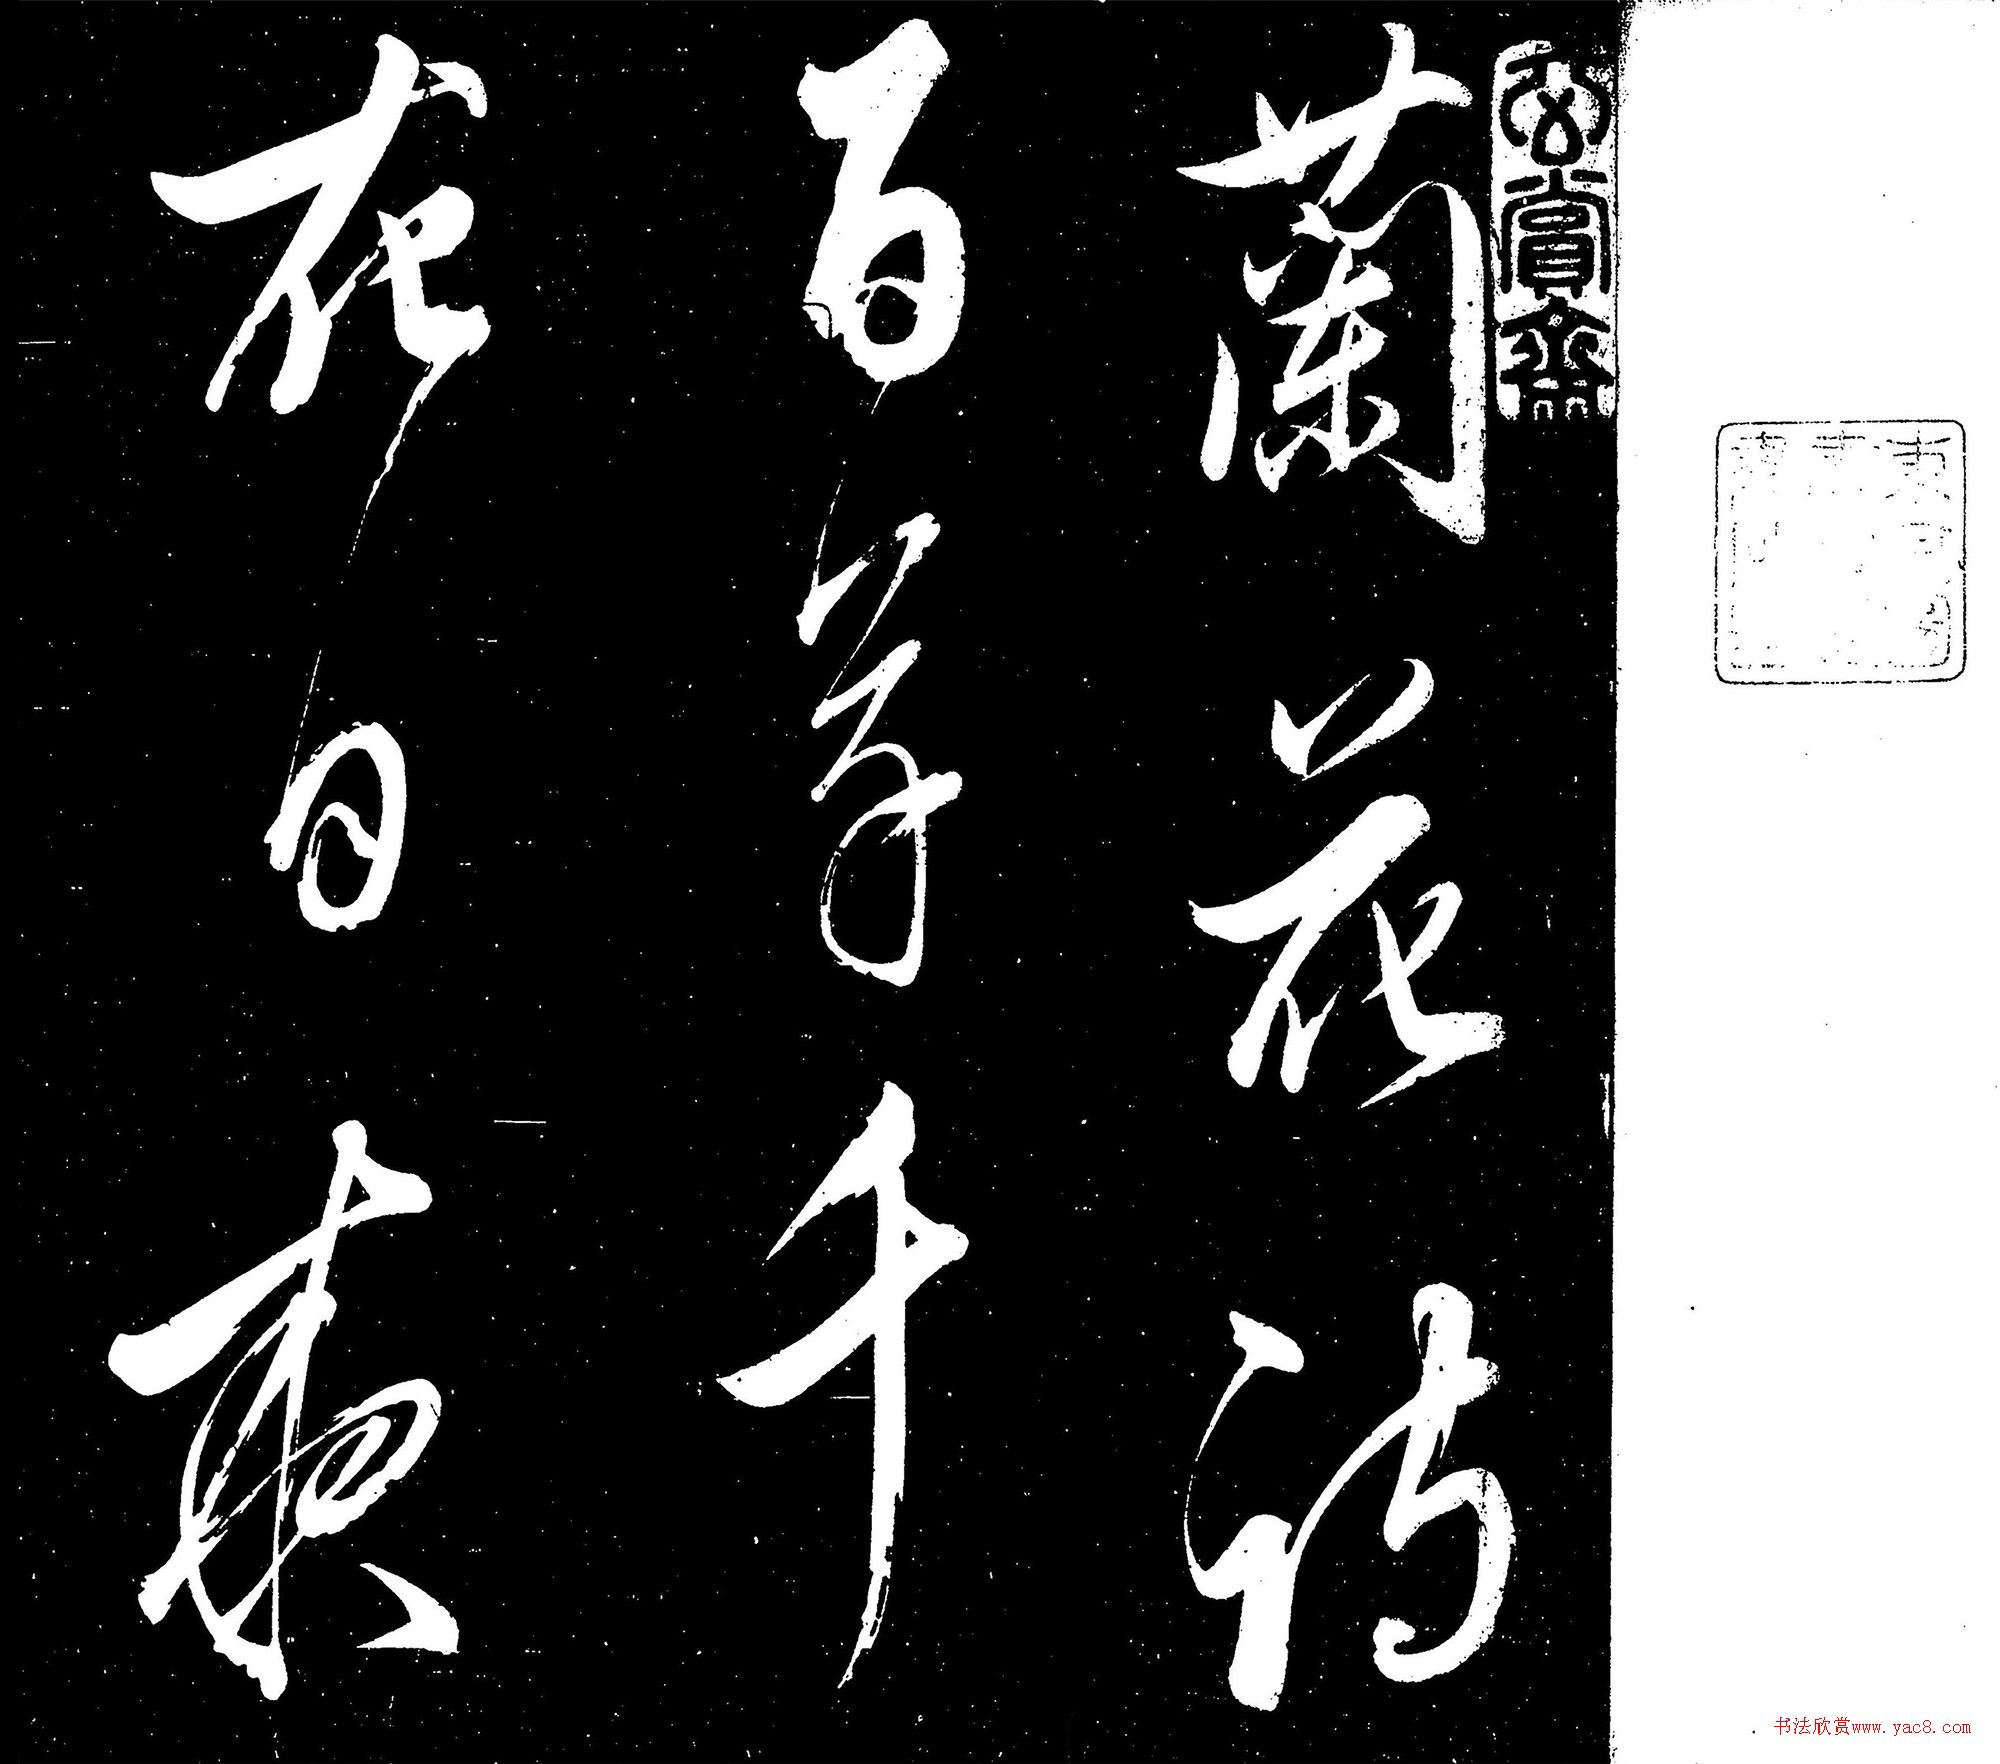 玄賞齋
蘭花詩
百草千
花日夜
书法欣赏www.yac8.com